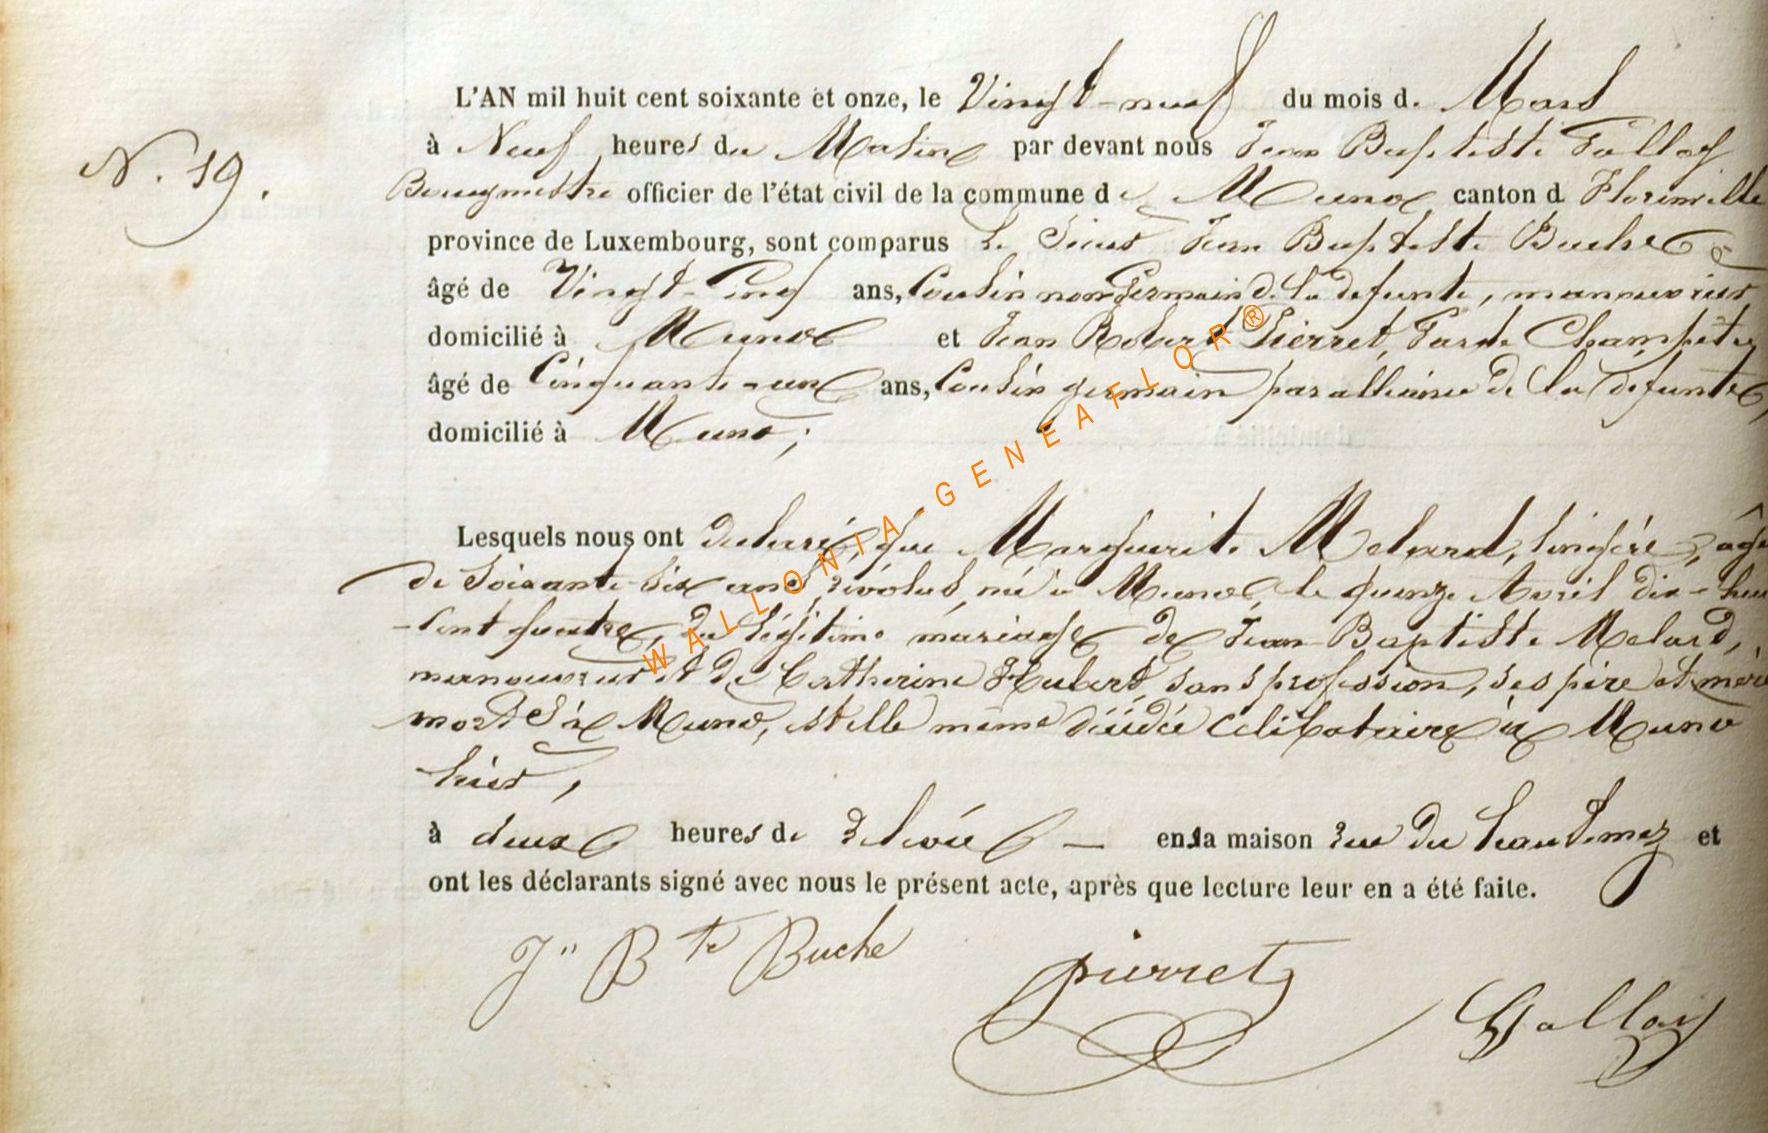 L'AN mil huit cent soixante et onze, le Vingt-neuf du mois de Mars
N. 19. à Neuf heures du Matin par devant nous Jean Baptiste Gallois
Bourgmestre officier de l'état civil de la commune de Muno canton d Florenville
province de Luxembourg, sont comparus Le Sieur Jean Baptiste Buche
âgé de Vingt-Cinq ans, Cousin non Germain de la défunte, manouvrier
domicilié à Muno et Jean Robert Pierret, Garde Champêtre
âgé de Cinquante-un ans, Cousin germain par alliance de la défunte,
domicilié à Muno;
Lesquels nous ont déclaré, que Marguerite Melard, lingère, âgée
de Soixante-Six ans révolus, née à Muno, le quinze Avril dix-huit
-cent quatre, du légitime mariage de Jean Baptiste Melard,
manouvrier et de Catherine Hubert, sans profession, ses père et mère
morts à Muno, est elle même décédée célibataire à Muno
hier,
à deux heures de relevée — en sa maison rue du et
ont les déclarants signé avec nous le présent acte, après que lecture leur en a été faite.
Jn Bte Buche pierret Gallois
WALLONIA-GENEAFLOR®